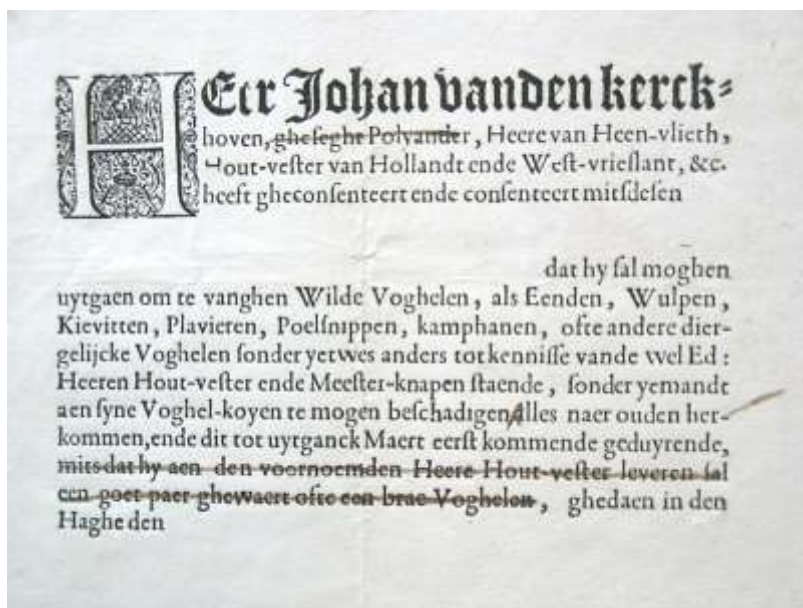 HEer Johan vanden kerck-
hoven, gheseght Polyander, Heere van Heen-vlieth,
Hout-vester van Hollandt ende West-vrieslant, &c.
heeft gheconsenteert ende consenteert mitsdesen
dat hy sal moghen
uytgaen om te vanghen Wilde Voghelen, als Eenden, Wulpen,
Kievitten, Plavieren, Poelsnippen, kamphanen, ofte andere dier-
gelijcke Voghelen sonder yetwes anders tot kennisse vande wel Ed:
Heeren Hout-vester ende Meester-knapen staende, sonder yemandt
aen syne Voghel-koyen te mogen beschadigen Alles naer ouden her-
kommen, ende dit tot uytganck Maert eerst kommende geduyrende,
mits dat hy aen den voornoemden Heere Hout-vester leveren sal
een goet paer ghewaert ofte een brae Voghelen, ghedaen in den
Haghe den